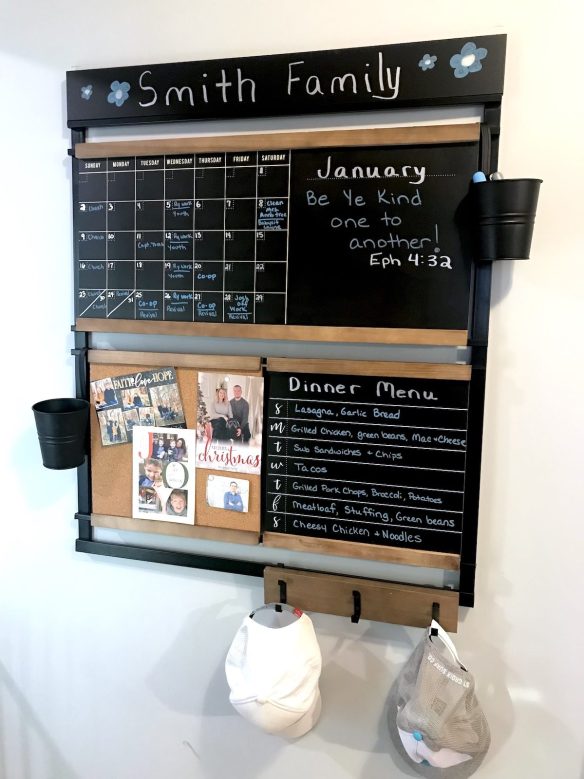 Smith Family
SUNDAY MONDAY TUESDAY WEDNESDAY THURSDAY FRIDAY SATURDAY
1
2 Church 3 4 5 Fly work Youth 6 7 8 Clean
Babysit
9 Church 10 11 12 Fly work Youth 13 14 15
16 Church 17 18 19 Fly work Youth 20 Co-op 21 22
23 30 Church Church 24 31 25 Co-op Revival 26 Fly work Revival 27 Co-op Revival 28 Josh off Work Revival 29
January
Be Ye Kind
one to
another!
Eph 4:32
FAITH love HOPE
christmas
JOY
Dinner Menu
S Lasagna, Garlic Bread
m Grilled Chicken, green beans, Mac + Cheese
t Sub Sandwiches + Chips
w Tacos
t Grilled Pork Chops, Broccoli, Potatoes
f Meatloaf, Stuffing, Green beans
S Cheesy Chicken + Noodles